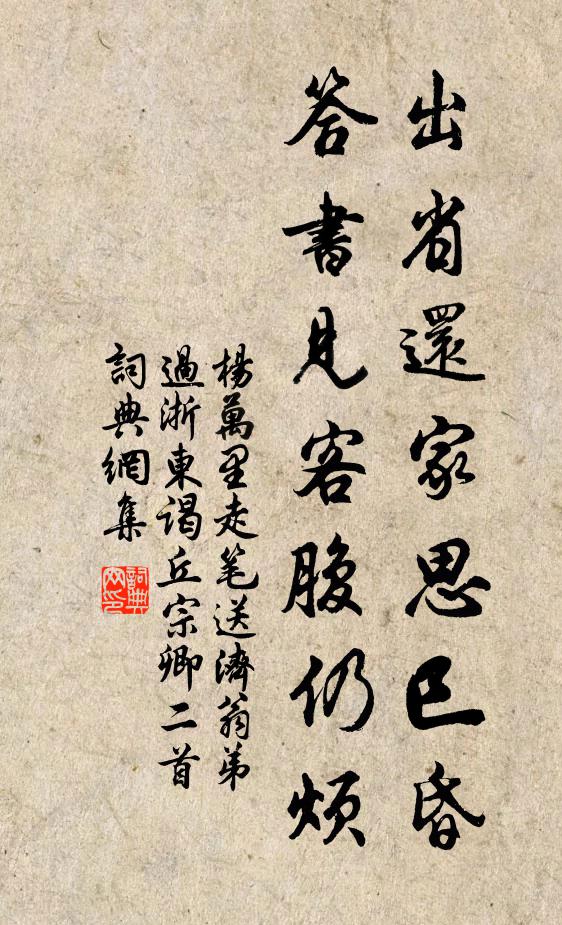 出省還家思已昏
答書見客腹仍煩
楊萬里走笔送濟翁弟
過浙東謁丘宗卿二首
詞典網集
詞典
网印